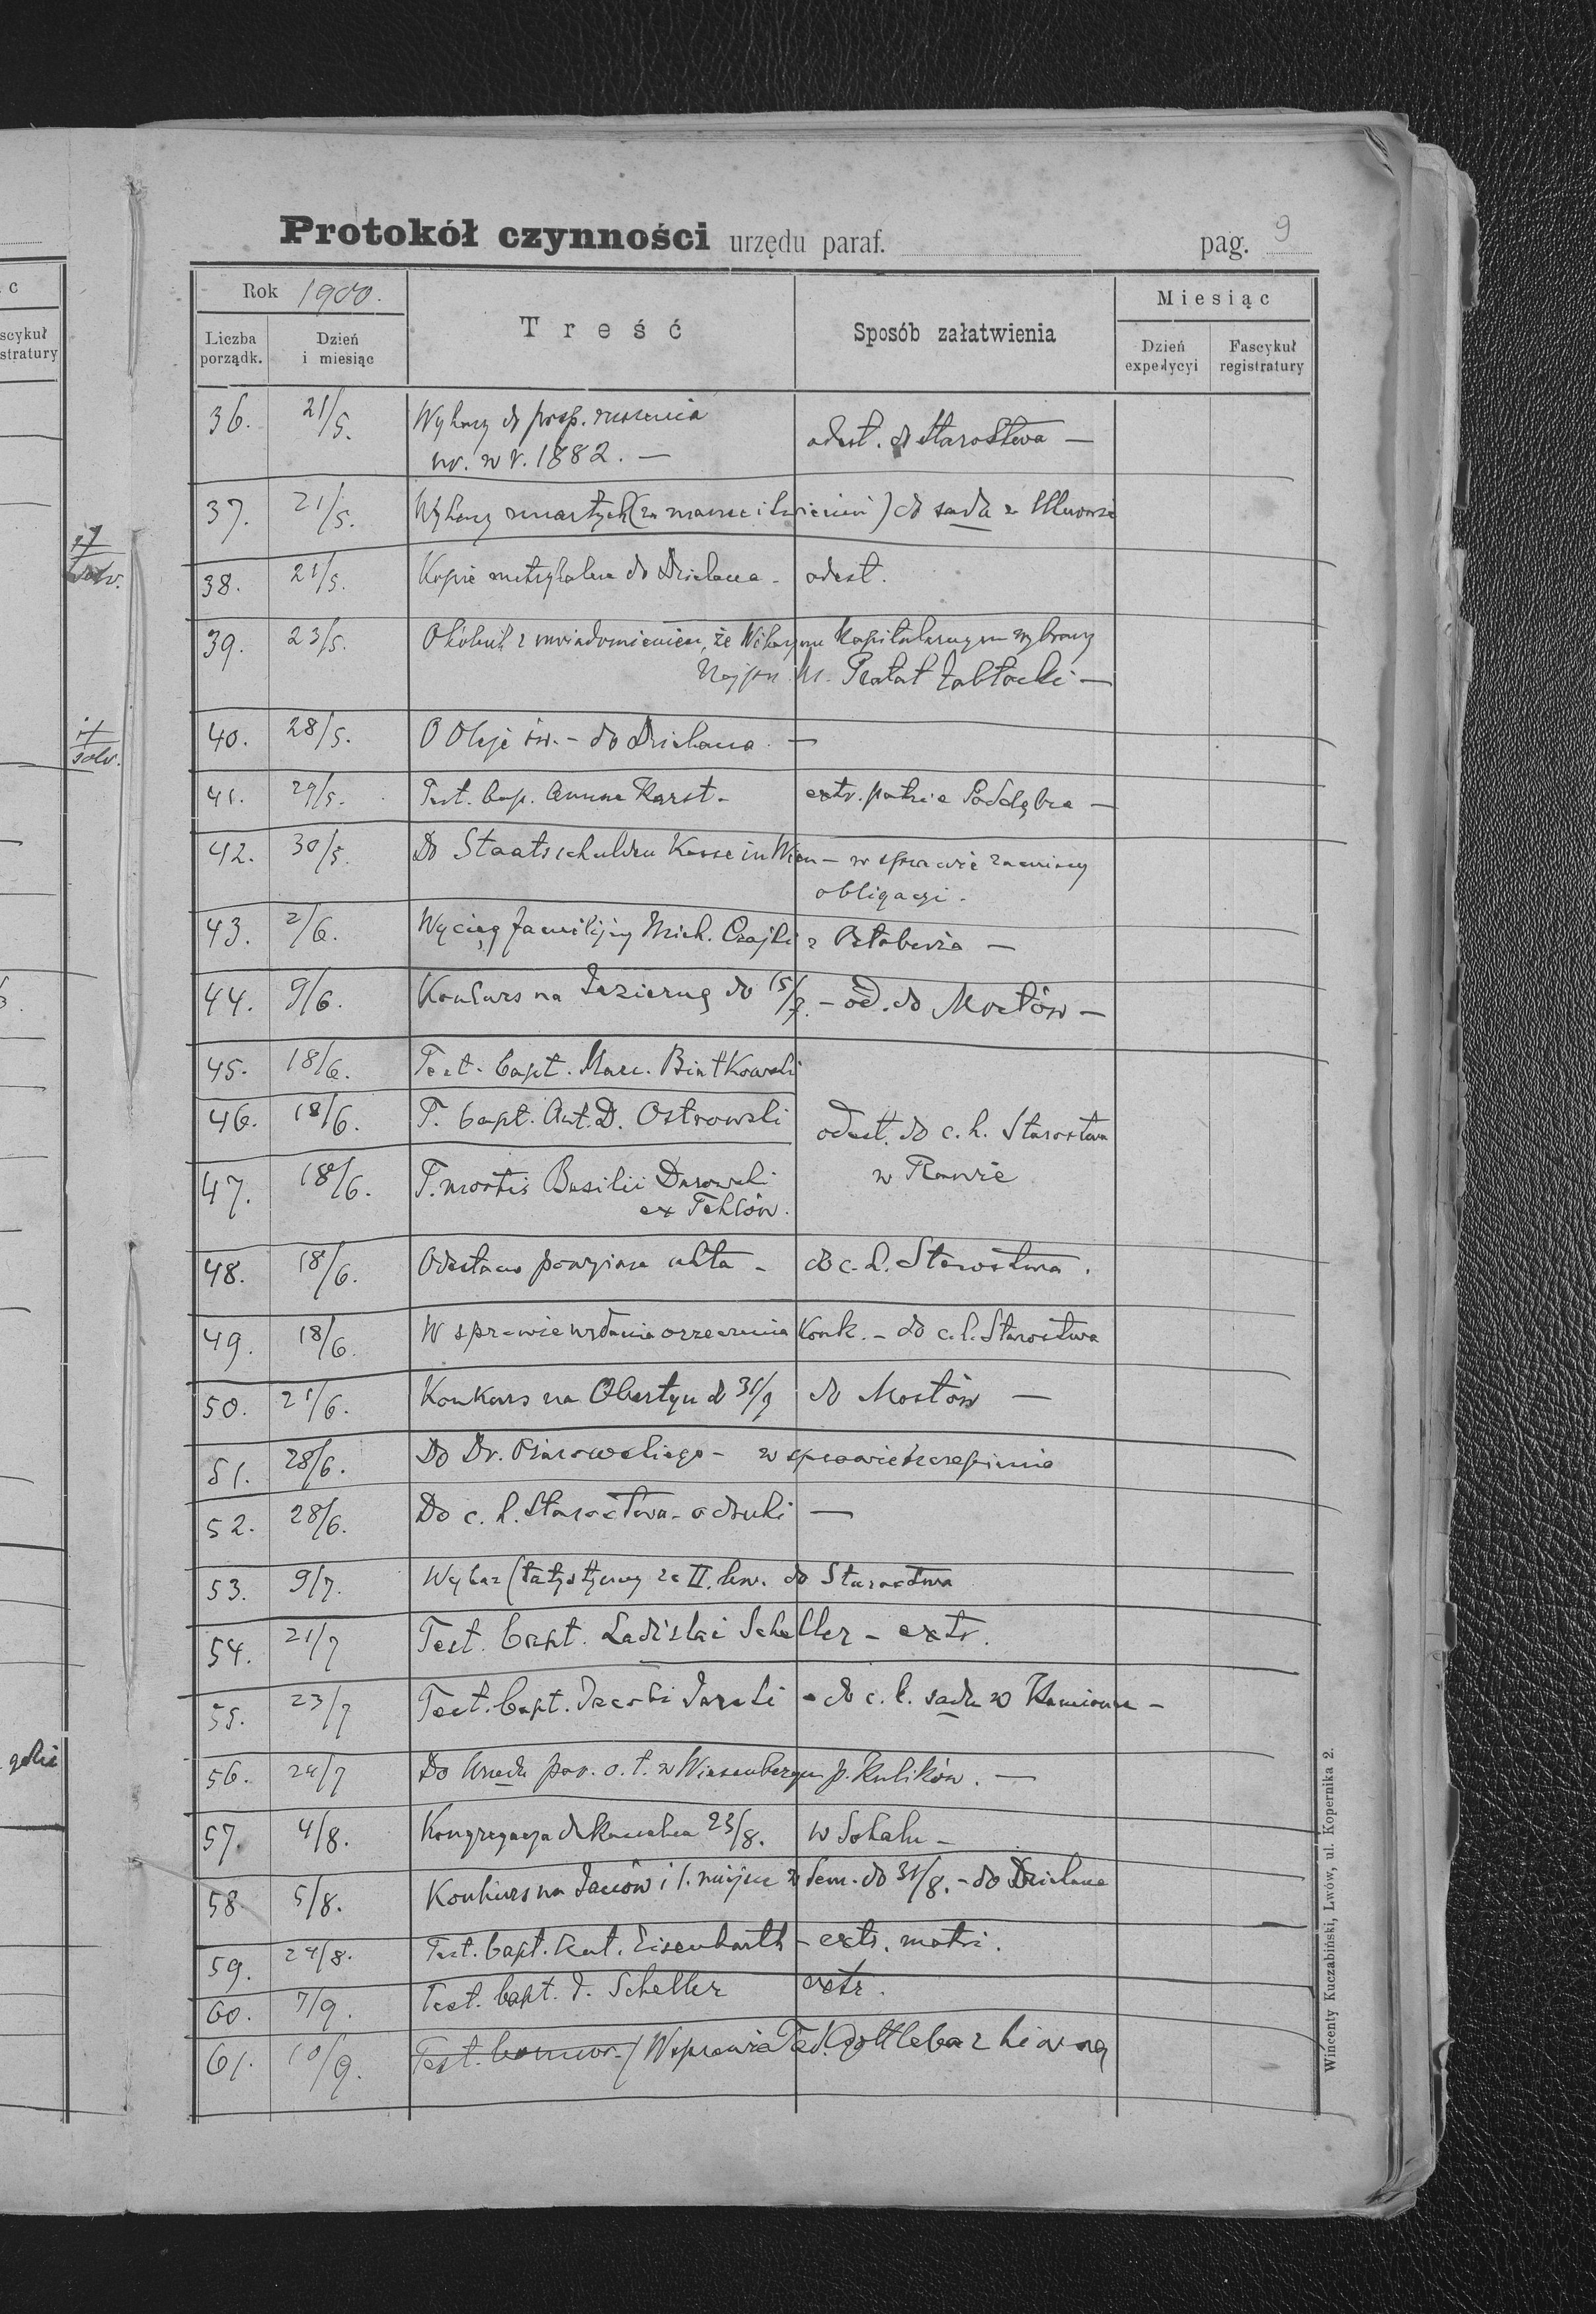 c
scykuł
stratury
solv.
solv.
Protokół czynności urzędu paraf. pag. 9
Rok 1900.
Miesiąc
Liczba porządk.
Dzień i miesiąc
Treść
Sposób załatwienia
Dzień expedycyi
Fascykuł registratury
36. 21/5. Wykazy do posp. ruszenia
ur. w r. 1882. — odest. do Starostwa —
37. 21/5. Wykazy zmarłych (za marzec i kwiecień) do sądu w Uhnowie
38. 21/5. Kopie metrykalne do Dziekana - odest.
39. 23/5. Okólnik z uwiadomieniem, że Wikaryum Kapitularnym wybrany
Najprz. Ks. Prałat Zabłocki —
40. 28/5. O Oleje św. - do Dziekana —
41. 29/5. Test. bap. Annae Karst - extr. patri e Poddębce —
42. 30/5. Do Staatsschulden Kasse in Wien - w sprawie zamiany
obligacyi.
43. 2/6. Wyciąg familijny Mich. Czajki z —
44. 9/6. Konkurs na Jezierną do 15/7. - od. do Mostów —
45. 18/6. Test. bapt. Marc. Białkowski
46. 18/6. T. bapt. Ant. D. Ostrowski
odest. do c. k. Starostwa
w Rawie
47. 18/6. T. mortis Basilii Durowski
ex Tehlów.
48. 18/6. Odesłano powyższe akta - do c. k. Starostwa.
49. 18/6. W sprawie wydania orzeczenia Konk. - do c. k. Starostwa
50. 21/6. Konkurs na Obertyn do 31/7 do Mostów —
51. 28/6. Do Dr. - w sprawie szczepienia
52. 28/6. Do c. k. Starostwa - o druki —
53. 9/7. Wykaz statystyczny za II. kw. do Starostwa
54. 21/7 Test. bapt. Ladislai Scheller - extr.
55. 23/7 Test. bapt. Jacobi - do c. k. sądu w Kamionce -
56. 24/7 Do Urzędu par. o. ł. w Wiesenbergu p. Kulików. —
57. 4/8. Kongregacja dekanalna 23/8. w Sokalu -
58. 5/8. Konkurs na Janów i 1. miejsce w Sem. do 31/8. - do Dziekana
59. 24/8. Test. bapt. Eisenbarth - extr. matri.
60. 7/9. Test. bapt. J. Scheller extr.
61. 10/9. Test. / W sprawie Tad. Gottleba z
Wincenty Kuczabiński, Lwów, ul. Kopernika 2.